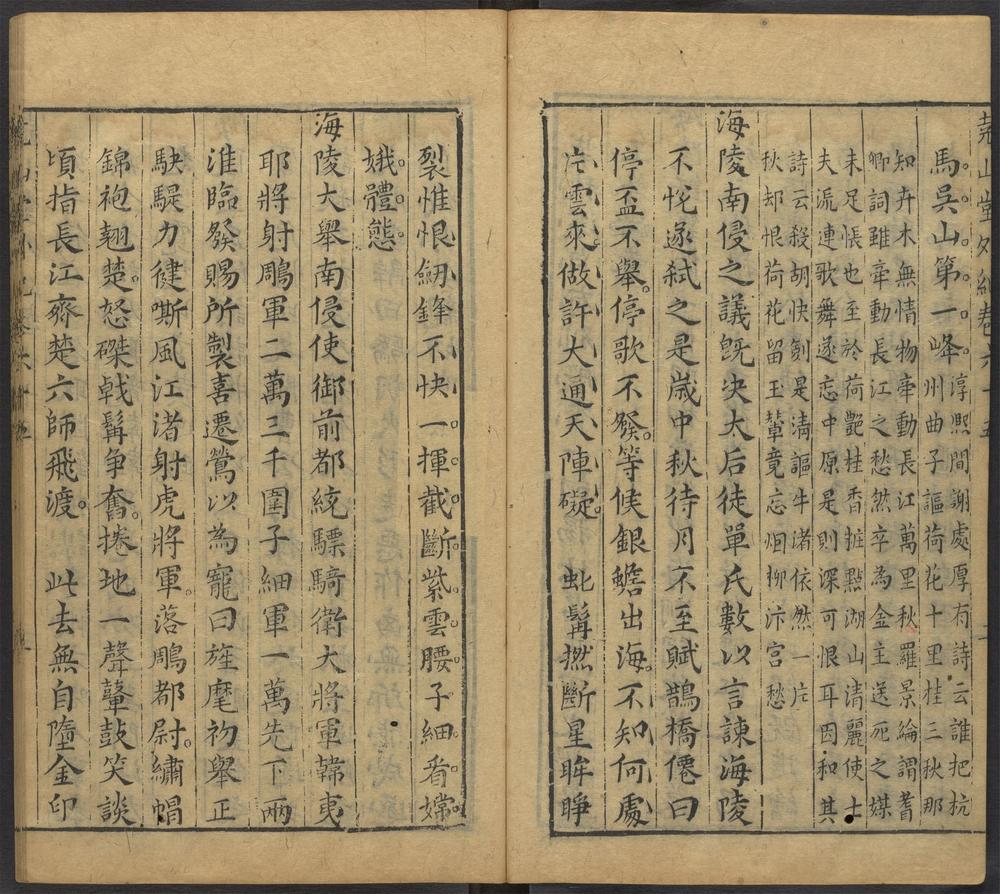 堯山堂外紀卷六十五
馬吳山第一峰淳熈間謝處厚有詩云誰把杭
州曲子謳荷花十里桂三秋那
知卉木無情物牽動長江萬里秋羅景綸謂耆
卿詞雖牽動長江之愁然卒為金主送死之媒
未足悵也至於荷艷桂香粧點湖山清麗使士
夫流連歌舞遂忘中原是則深可恨耳因和其
詩云殺胡快劍是清謳牛渚依然一片
秋却恨荷花留玉輦竟忘烟柳汴宮愁
海陵南侵之議旣决太后徒單氏數以言諫海陵
不悅遂弑之是歲中秋待月不至賦鵲橋僊曰
停盃不舉停歌不發等候銀蟾出海不知何處
片雲來做許大通天陣礙 虬髯撚斷星眸睜
裂惟恨劒鋒不快一揮截斷紫雲腰子細看嫦
娥體態
海陵大舉南侵使御前都統驃騎衛大將軍韓夷
耶將射鵰軍二萬三千圍子細軍一萬先下兩
淮臨發賜所製喜遷鶯以為寵曰旌麾初舉正
駃騠力健嘶風江渚射虎將軍落鵰都尉繡帽
錦袍翹楚怒磔戟髯争奮捲地一聲鼙鼓笑談
頃指長江齊楚六師飛渡 此去無自墮金印